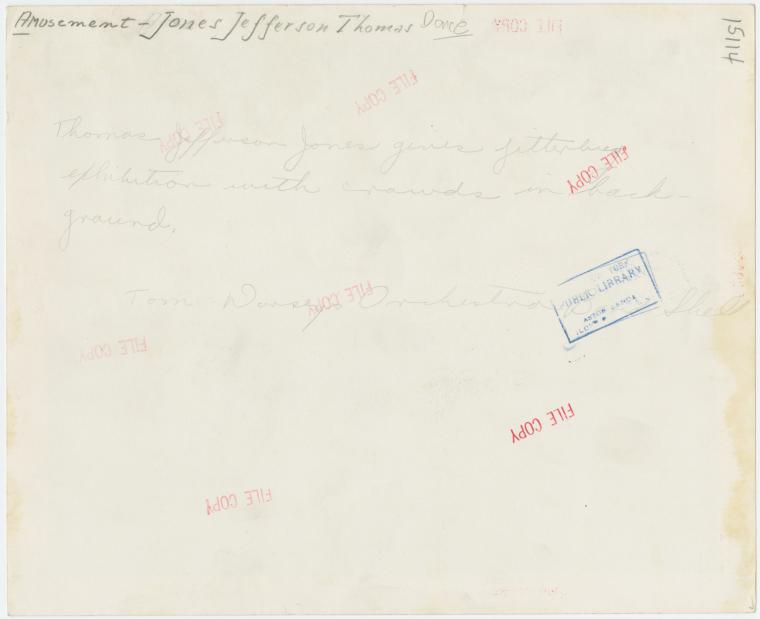 Amusement - Jones Jefferson Thomas Done
15114
FILE COPY
FILE COPY
FILE COPY
FILE COPY
Thomas Jefferson Jones gives jitterbug
exhibition with crowds in back-
ground.
FILE COPY
Tom Dorsey Orchestra Shell
PUBLIC LIBRARY
ASTOR LENOX
FILE COPY
FILE COPY
FILE COPY